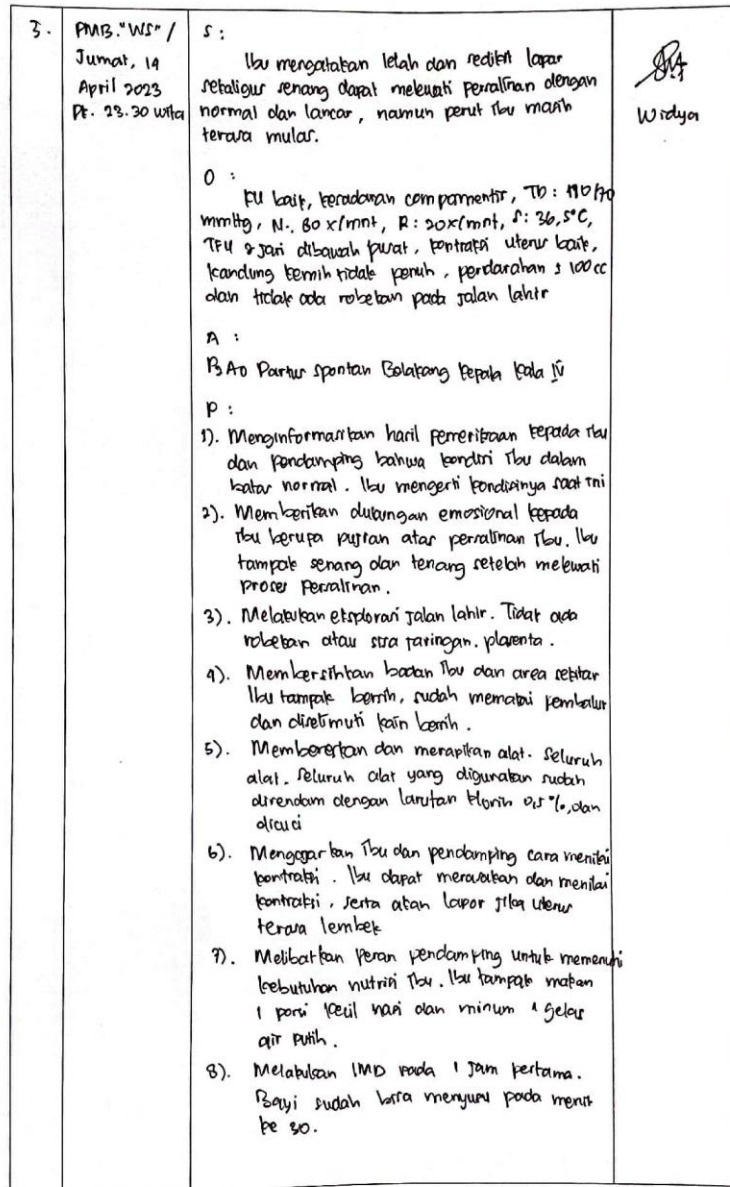 3.
PMB."WS" /
Jumat, 14
April 2023
Pk. 23.30 wita
S :
Ibu mengatakan lelah dan sedikit lapar
sekaligus senang dapat melewati persalinan dengan
normal dan lancar, namun perut ibu masih
terasa mulas.
O :
KU baik, kesadaran composmentis, TD : 110/70
mmHg, N : 80 x/mnt, R : 20x/mnt, S : 36,5°C,
TFU 2 jari dibawah pusat, kontraksi uterus baik,
kandung kemih tidak penuh, perdarahan ± 100 cc
dan tidak ada robekan pada jalan lahir
A :
Partus Spontan Belakang Kepala Kala IV
P :
1). Menginformasikan hasil pemeriksaan kepada ibu
dan pendamping bahwa kondisi ibu dalam
batas normal. Ibu mengerti kondisinya saat ini
2). Memberikan dukungan emosional kepada
ibu berupa pujian atas persalinan ibu. Ibu
tampak senang dan tenang setelah melewati
proses persalinan.
3). Melakukan eksplorasi jalan lahir. Tidak ada
robekan atau sisa jaringan. plasenta.
4). Membersihkan badan ibu dan area sekitar
Ibu tampak bersih, sudah memakai pembalut
dan diselimuti kain bersih.
5). Membereskan dan merapikan alat. Seluruh
alat. Seluruh alat yang digunakan sudah
direndam dengan larutan klorin 0,5 %, dan
dicuci
6). Mengajarkan ibu dan pendamping cara menilai
kontraksi. Ibu dapat merasakan dan menilai
kontraksi, serta akan lapor jika uterus
terasa lembek
7). Melibatkan peran pendamping untuk memenuhi
kebutuhan nutrisi ibu. Ibu tampak makan
1 porsi kecil nasi dan minum 1 gelas
air putih.
8). Melakukan IMD pada 1 jam pertama.
Bayi sudah bisa menyusu pada menit
ke 30.
Widya